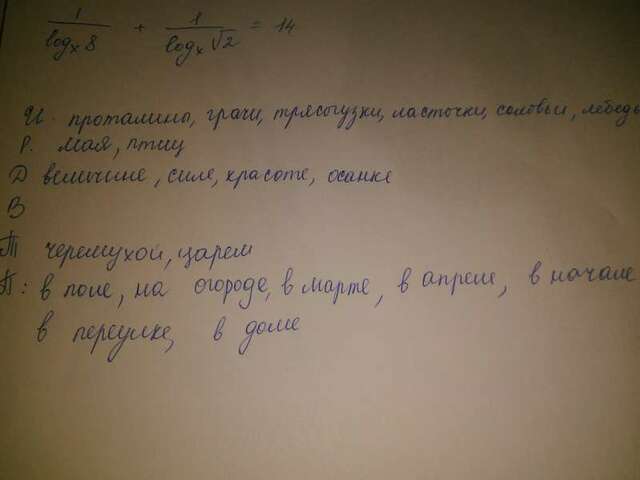 1/log_x 8 + 1/log_x √2 = 14
И. проталины, грачи, трясогузки, ласточки, соловьи, лебедь
Р. мая, птиц
Д величине, силе, красоте, осанке
В
Т черемухой, царем
П: в поле, на огороде, в марте, в апреле, в начале
в переулке, в доме